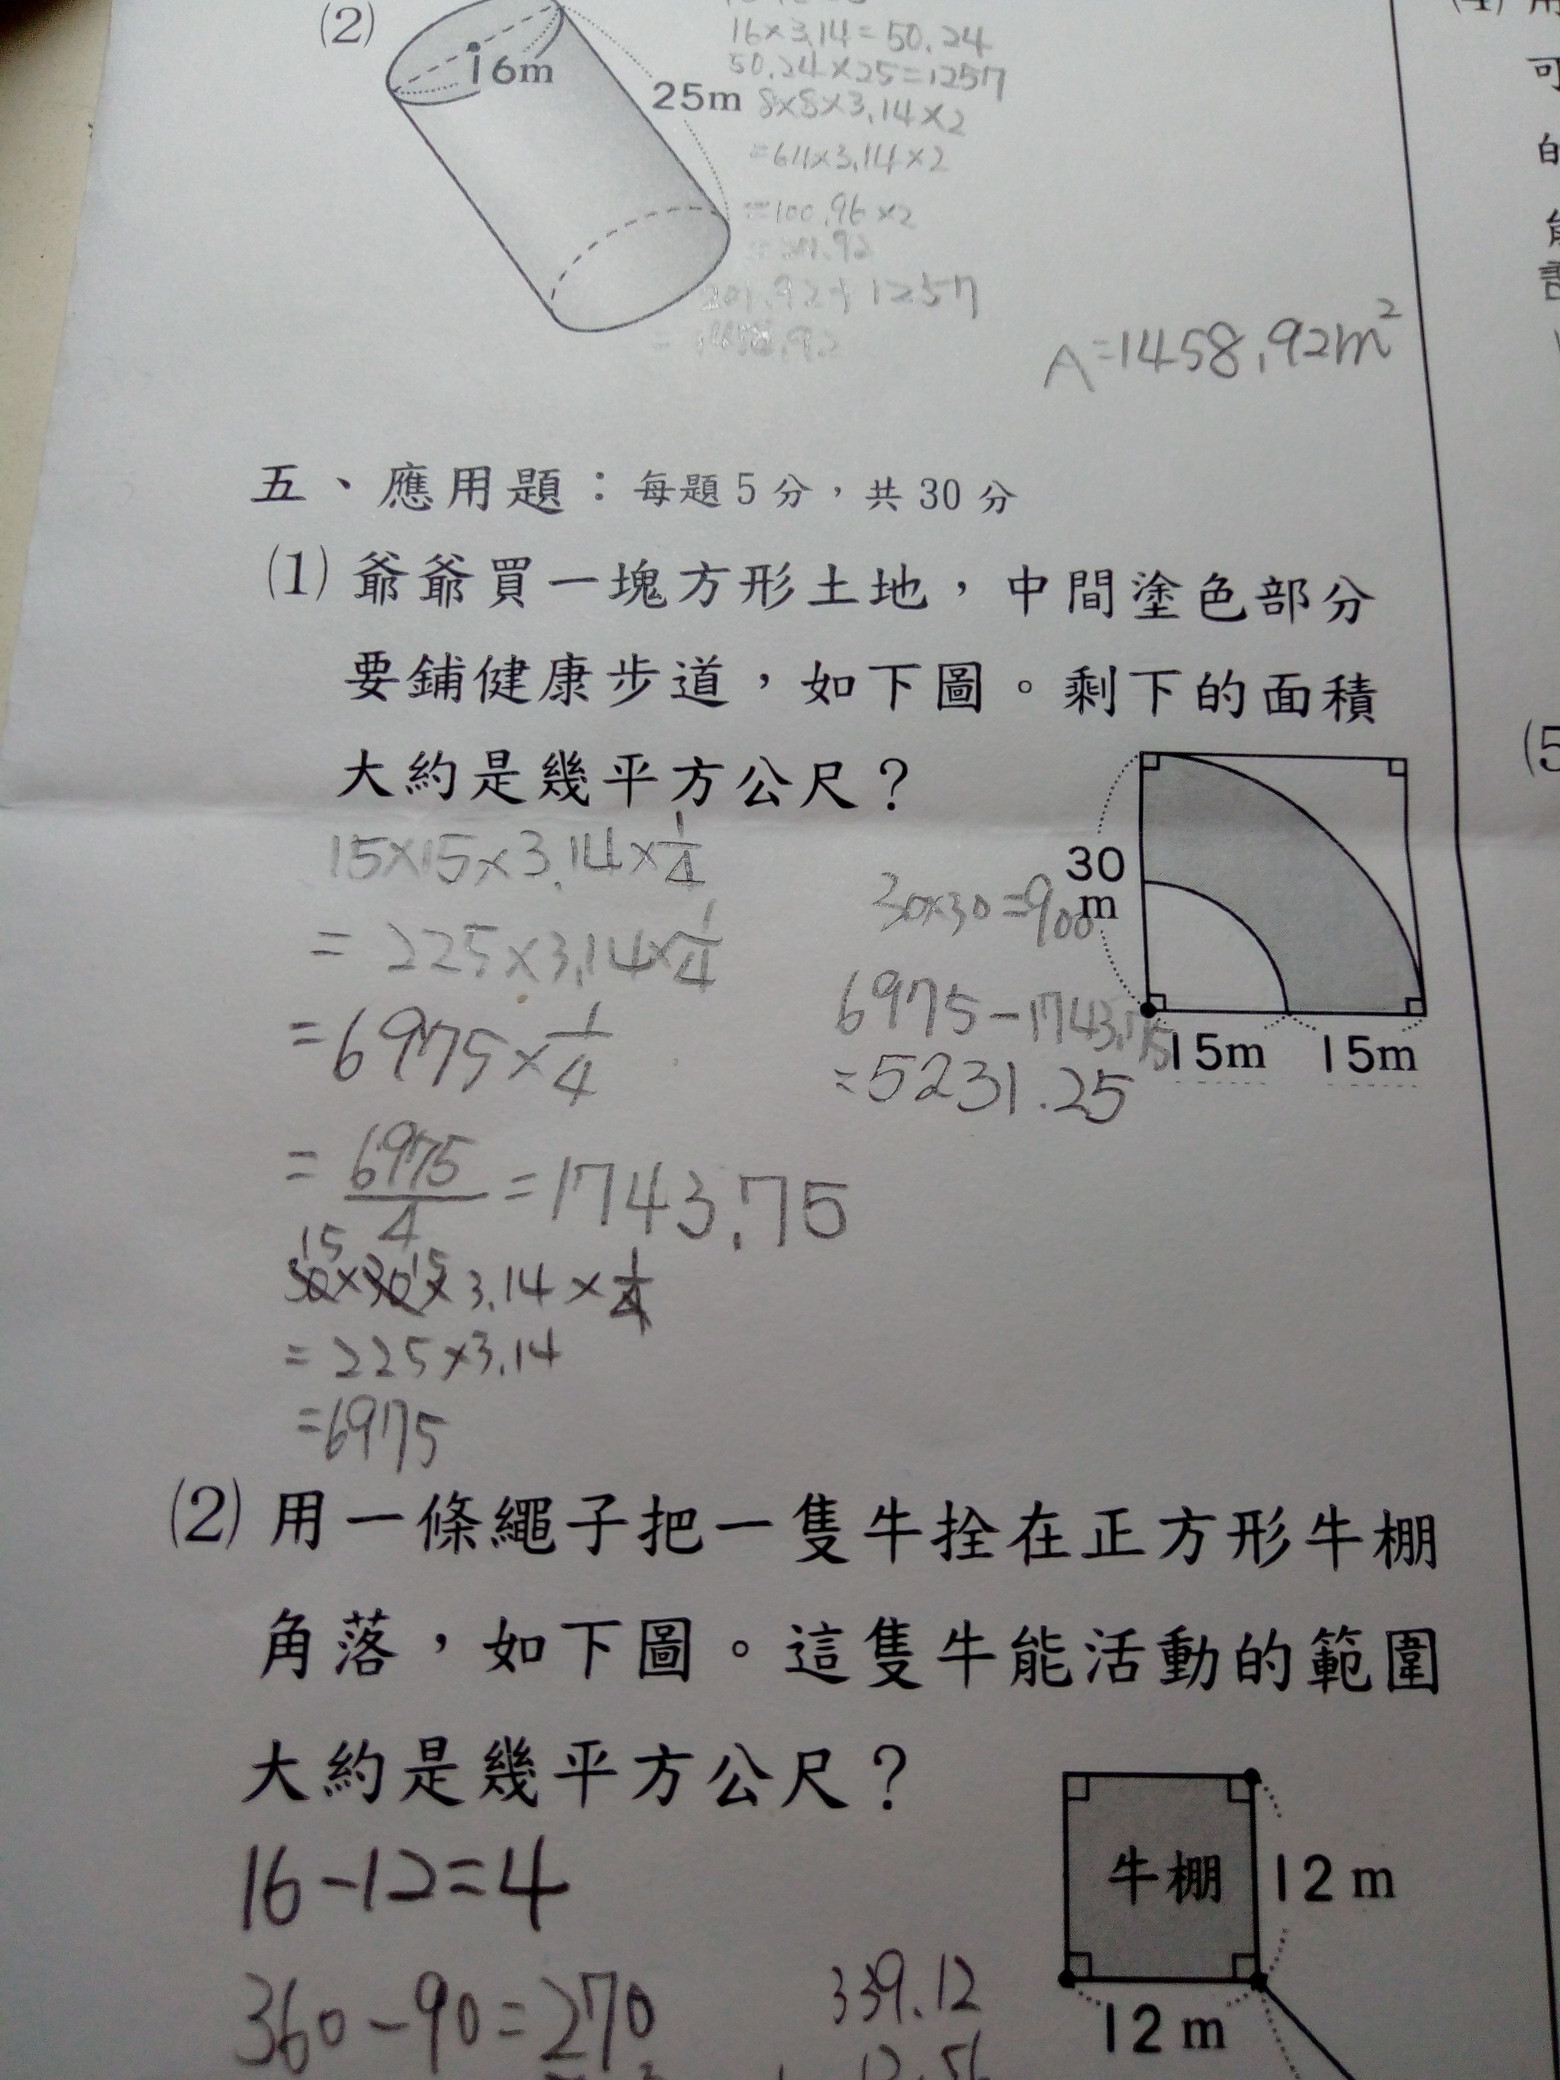 (2)
16m
25m
16×3.14=50.24
50.24×25=1257
8×8×3.14×2
=64×3.14×2
=100.96×2
201.92+1257
A=1458.92m²
五、應用題：每題5分，共30分
(1) 爺爺買一塊方形土地，中間塗色部分
要鋪健康步道，如下圖。剩下的面積
大約是幾平方公尺？
15×15×3.14×1/4
=225×3.14×1/4
=6975×1/4
=6975/4=1743.75
30×30×3.14×1/4
15 15
=225×3.14
=6975
30×30=900
6975-1743.75
=5231.25
30
m
15m 15m
(2) 用一條繩子把一隻牛拴在正方形牛棚
角落，如下圖。這隻牛能活動的範圍
大約是幾平方公尺？
16-12=4
360-90=270
339.12
12.56
牛棚
12m
12m
(5